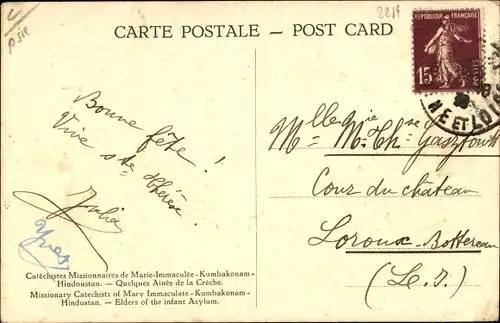 CARTE POSTALE — POST CARD
221F
RÉPUBLIQUE FRANÇAISE
15c
POSTES
NE ET LOIRE
Bonne fête !
Vive Ste Thérèse !
Julia
Yves
Mlle M. Th.
Cour du château
Loroux-Bottereau
(L. I.)
Catéchistes Missionnaires de Marie-Immaculée - Kumbakonam -
Hindoustan. — Quelques Ainés de la Crèche.
Missionary Catechists of Mary Immaculate - Kumbakonam -
Hindustan. — Elders of the infant Asylum.